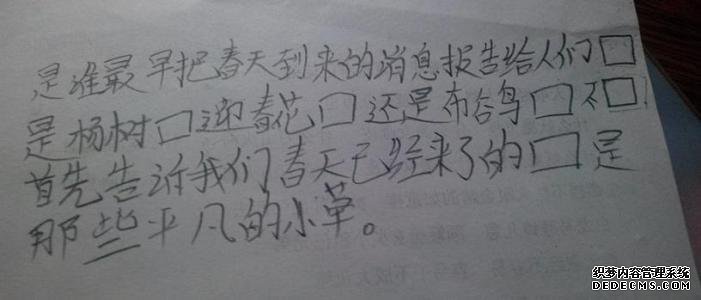 是谁最早把春天到来的消息报告给人们□
是杨树□迎春花□还是布谷鸟□不□
首先告诉我们春天已经来了的□是
那些平凡的小草。
织梦内容管理系统
DEDECMS.COM